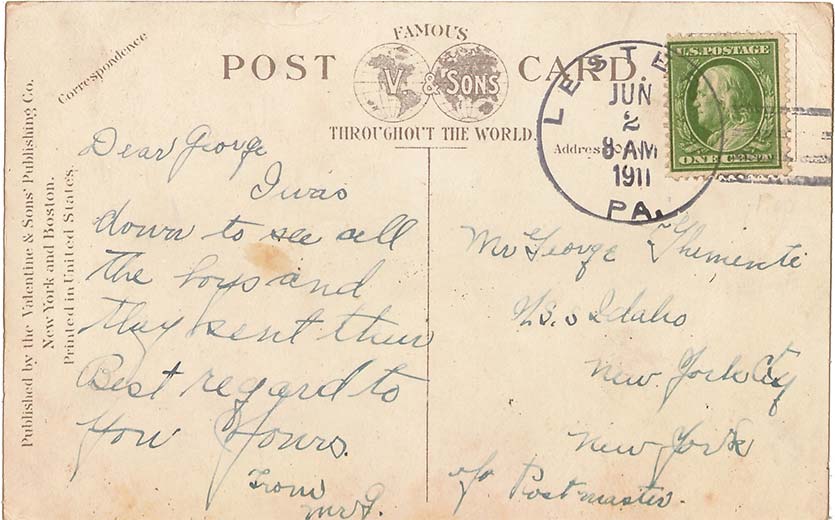 Published by the Valentine & Sons' Publishing Co.
New York and Boston.
Printed in United States.
Correspondence
FAMOUS
POST CARD.
V. & SONS
THROUGHOUT THE WORLD.
Address
LESTE
JUN
2
8 AM
1911
PA.
U.S. POSTAGE
ONE CENT
Dear George
I was
down to see all
the boys and
they sent their
Best regard to
you Yours.
From
Mr G.
Mr George
U.S.S Idaho
New York City
New York
c/o Postmaster.